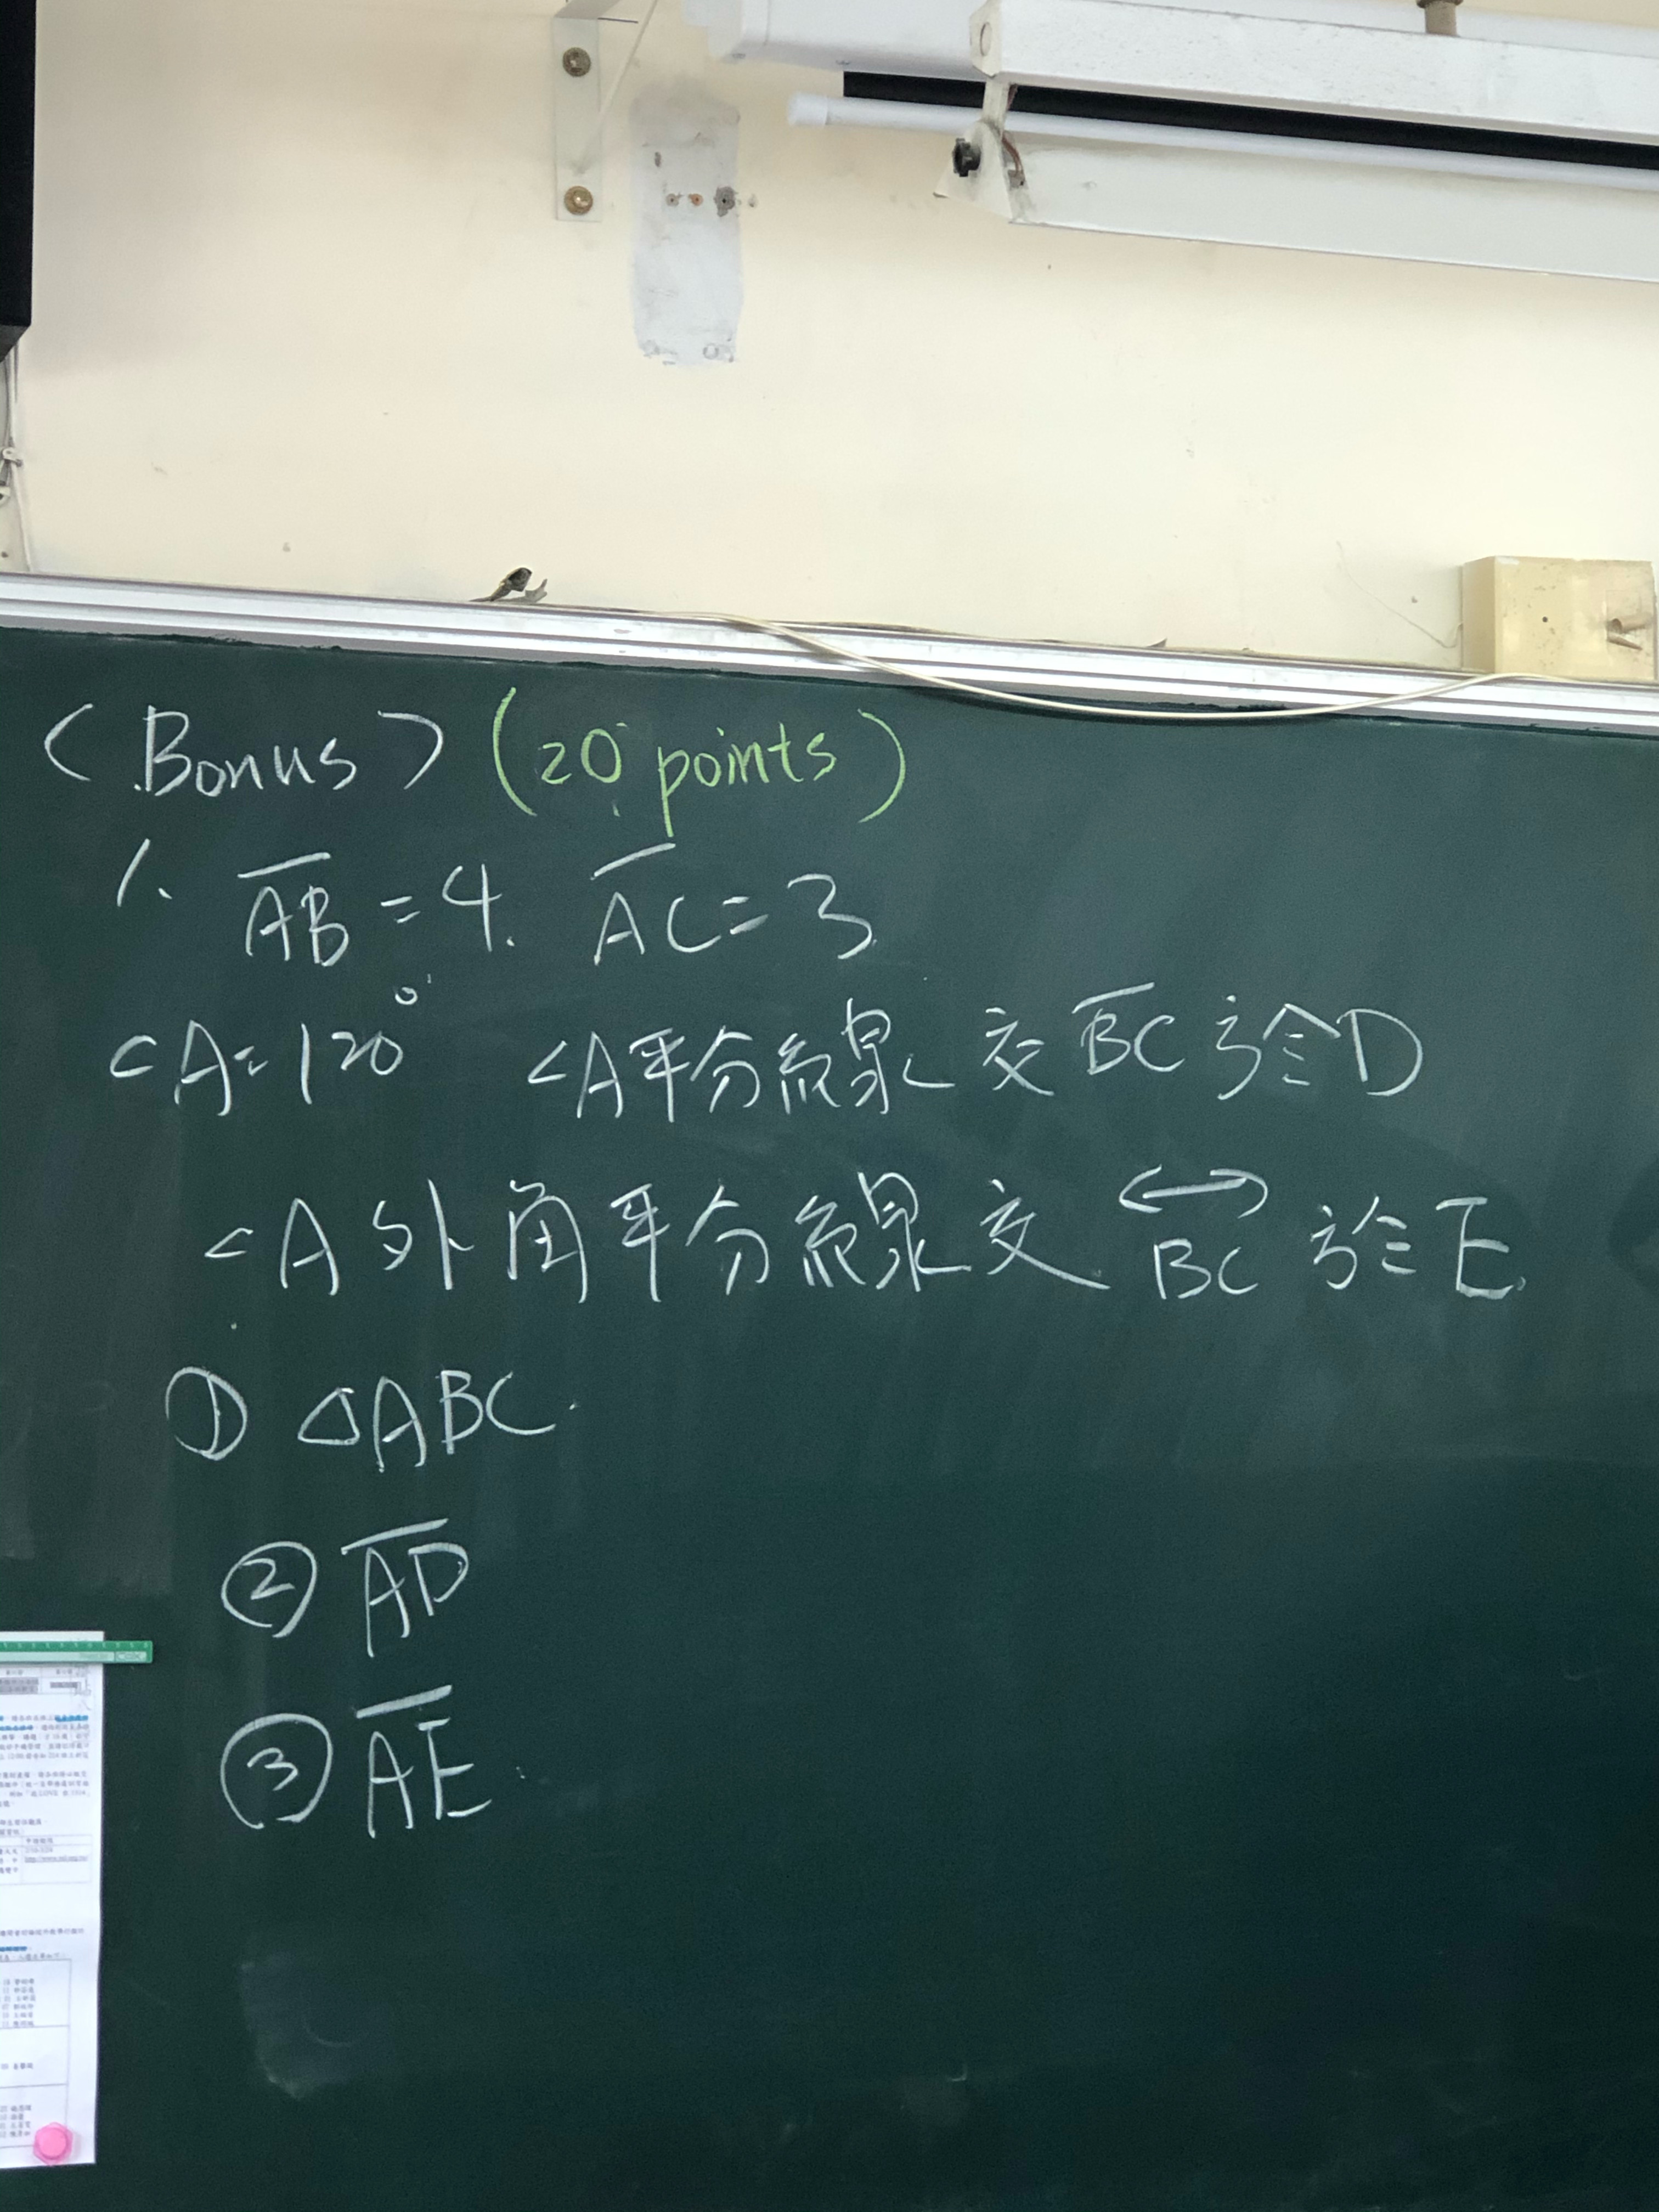 <Bonus> (20 points)
1. AB = 4. AC = 3
∠A = 120° ∠A平分線交BC於D
∠A外角平分線交BC於E.
① △ABC.
② AD
③ AE.